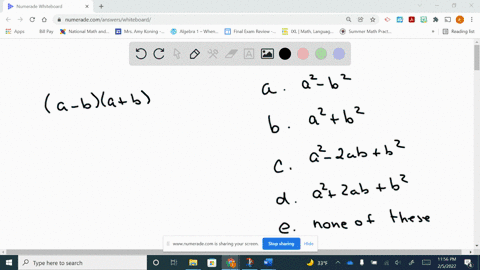 Numerade Whiteboard
numerade.com/answers/whiteboard/
Apps
Bill Pay
National Math and...
Mrs. Amy Koning -...
Algebra 1 – When...
Final Exam Review -...
(XL | Math, Languag...
Summer Math Pract...
Reading list
(a-b)(a+b)
a. a²-b²
b. a²+b²
c. a²-2ab+b²
d. a²+2ab+b²
e. none of these
www.numerade.com is sharing your screen.
Stop sharing
Hide
Type here to search
33°F
11:56 PM
2/5/2022